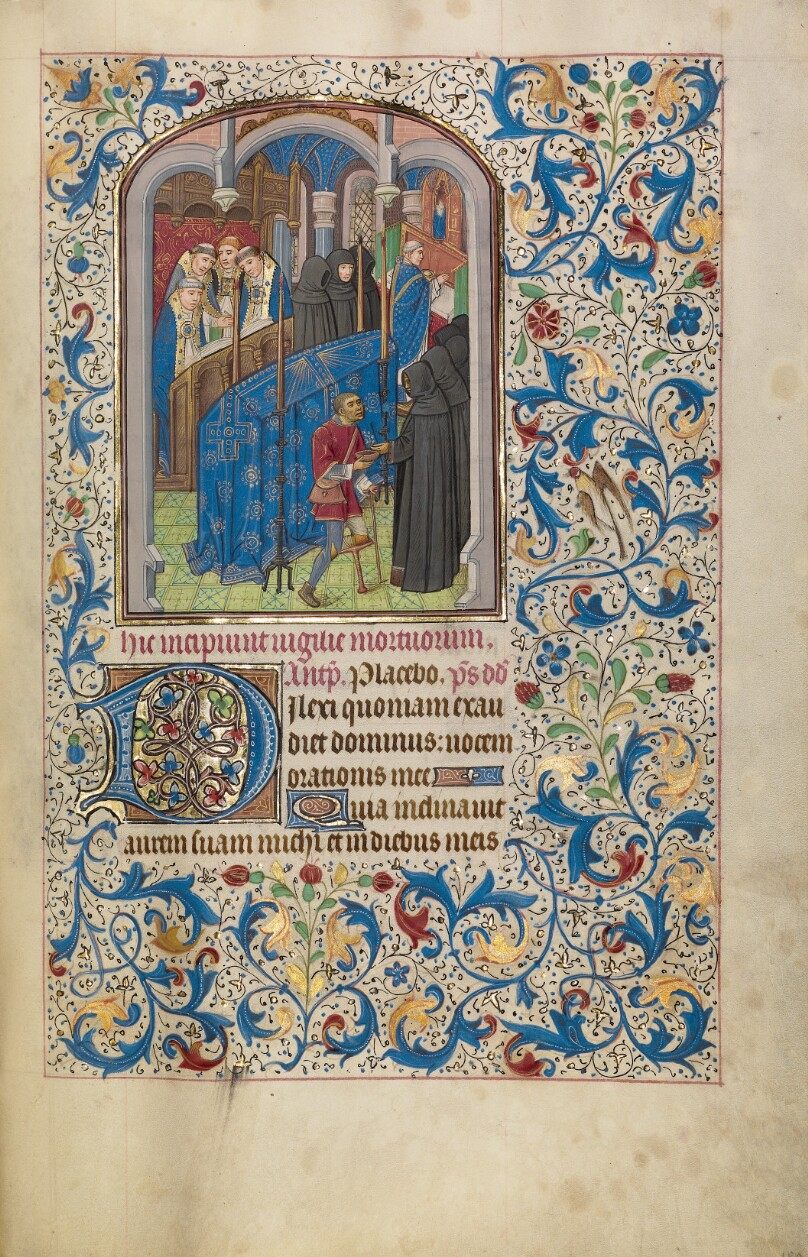 hic incipiunt uigilie mortuorum.
Antp̄. Placebo. p̄s dd̄
Dilexi quoniam exau
diet dominus: uocem
orationis mee
Quia inclinauit
aurem suam michi et in diebus meis